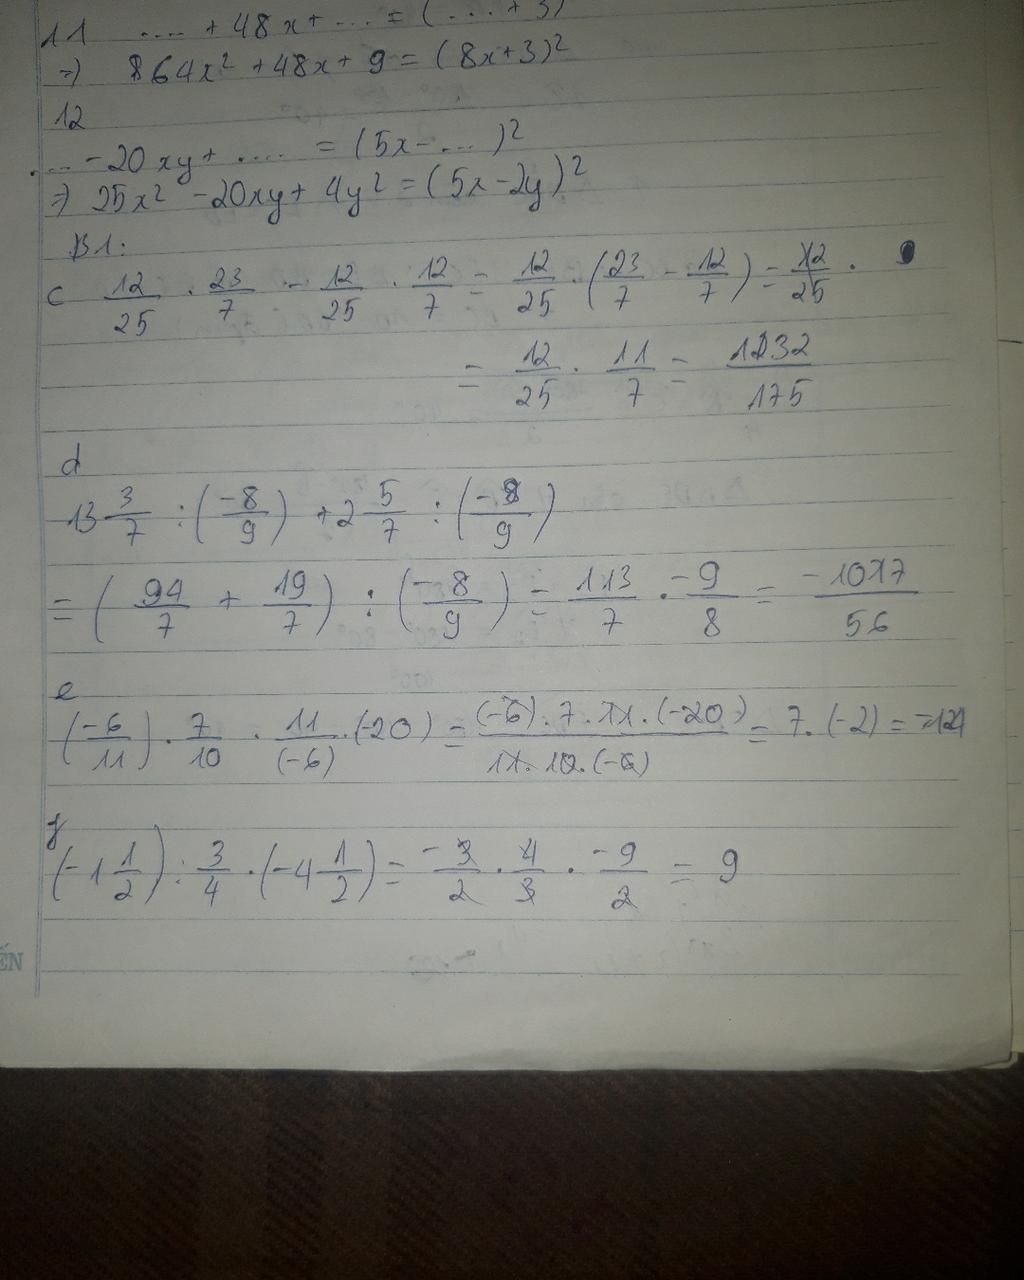 11 .... + 48x + ... = ( ... + 3)
=) 64x² + 48x + 9 = (8x+3)²
12
... - 20xy + .... = (5x - ... )²
=) 25x² - 20xy + 4y² = (5x - 2y)²
B1:
c 12/25 . 23/7 - 12/25 . 12/7 = 12/25 . (23/7 - 12/7) = 12/25 .
= 12/25 . 11/7 = 132/175
d
13 3/7 : (-8/9) + 2 5/7 : (-8/9)
= (94/7 + 19/7) : (-8/9) = 113/7 . -9/8 = -1017/56
e
(-6/11) . 7/10 . 11/(-6) . (-20) = (-6).7.11.(-20)/11.10.(-6) = 7.(-2) = -14
f
(-1 1/2) : 3/4 . (-4 1/2) = -3/2 . 4/3 . -9/2 = 9
ẾN